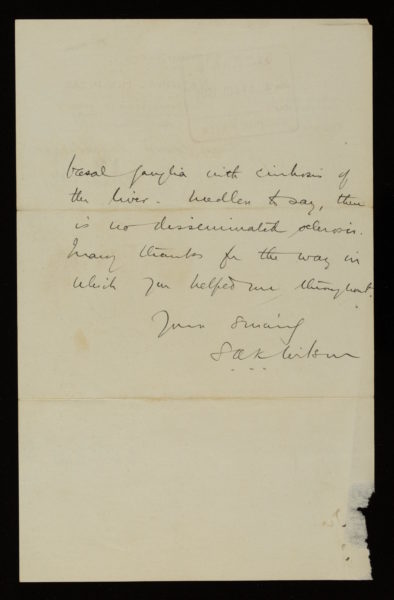 basal ganglia with cirrhosis of
the liver. Needless to say, there
is no disseminated sclerosis.
Many thanks for the way in
which you helped me throughout.
Yours sincerely
S A K Wilson